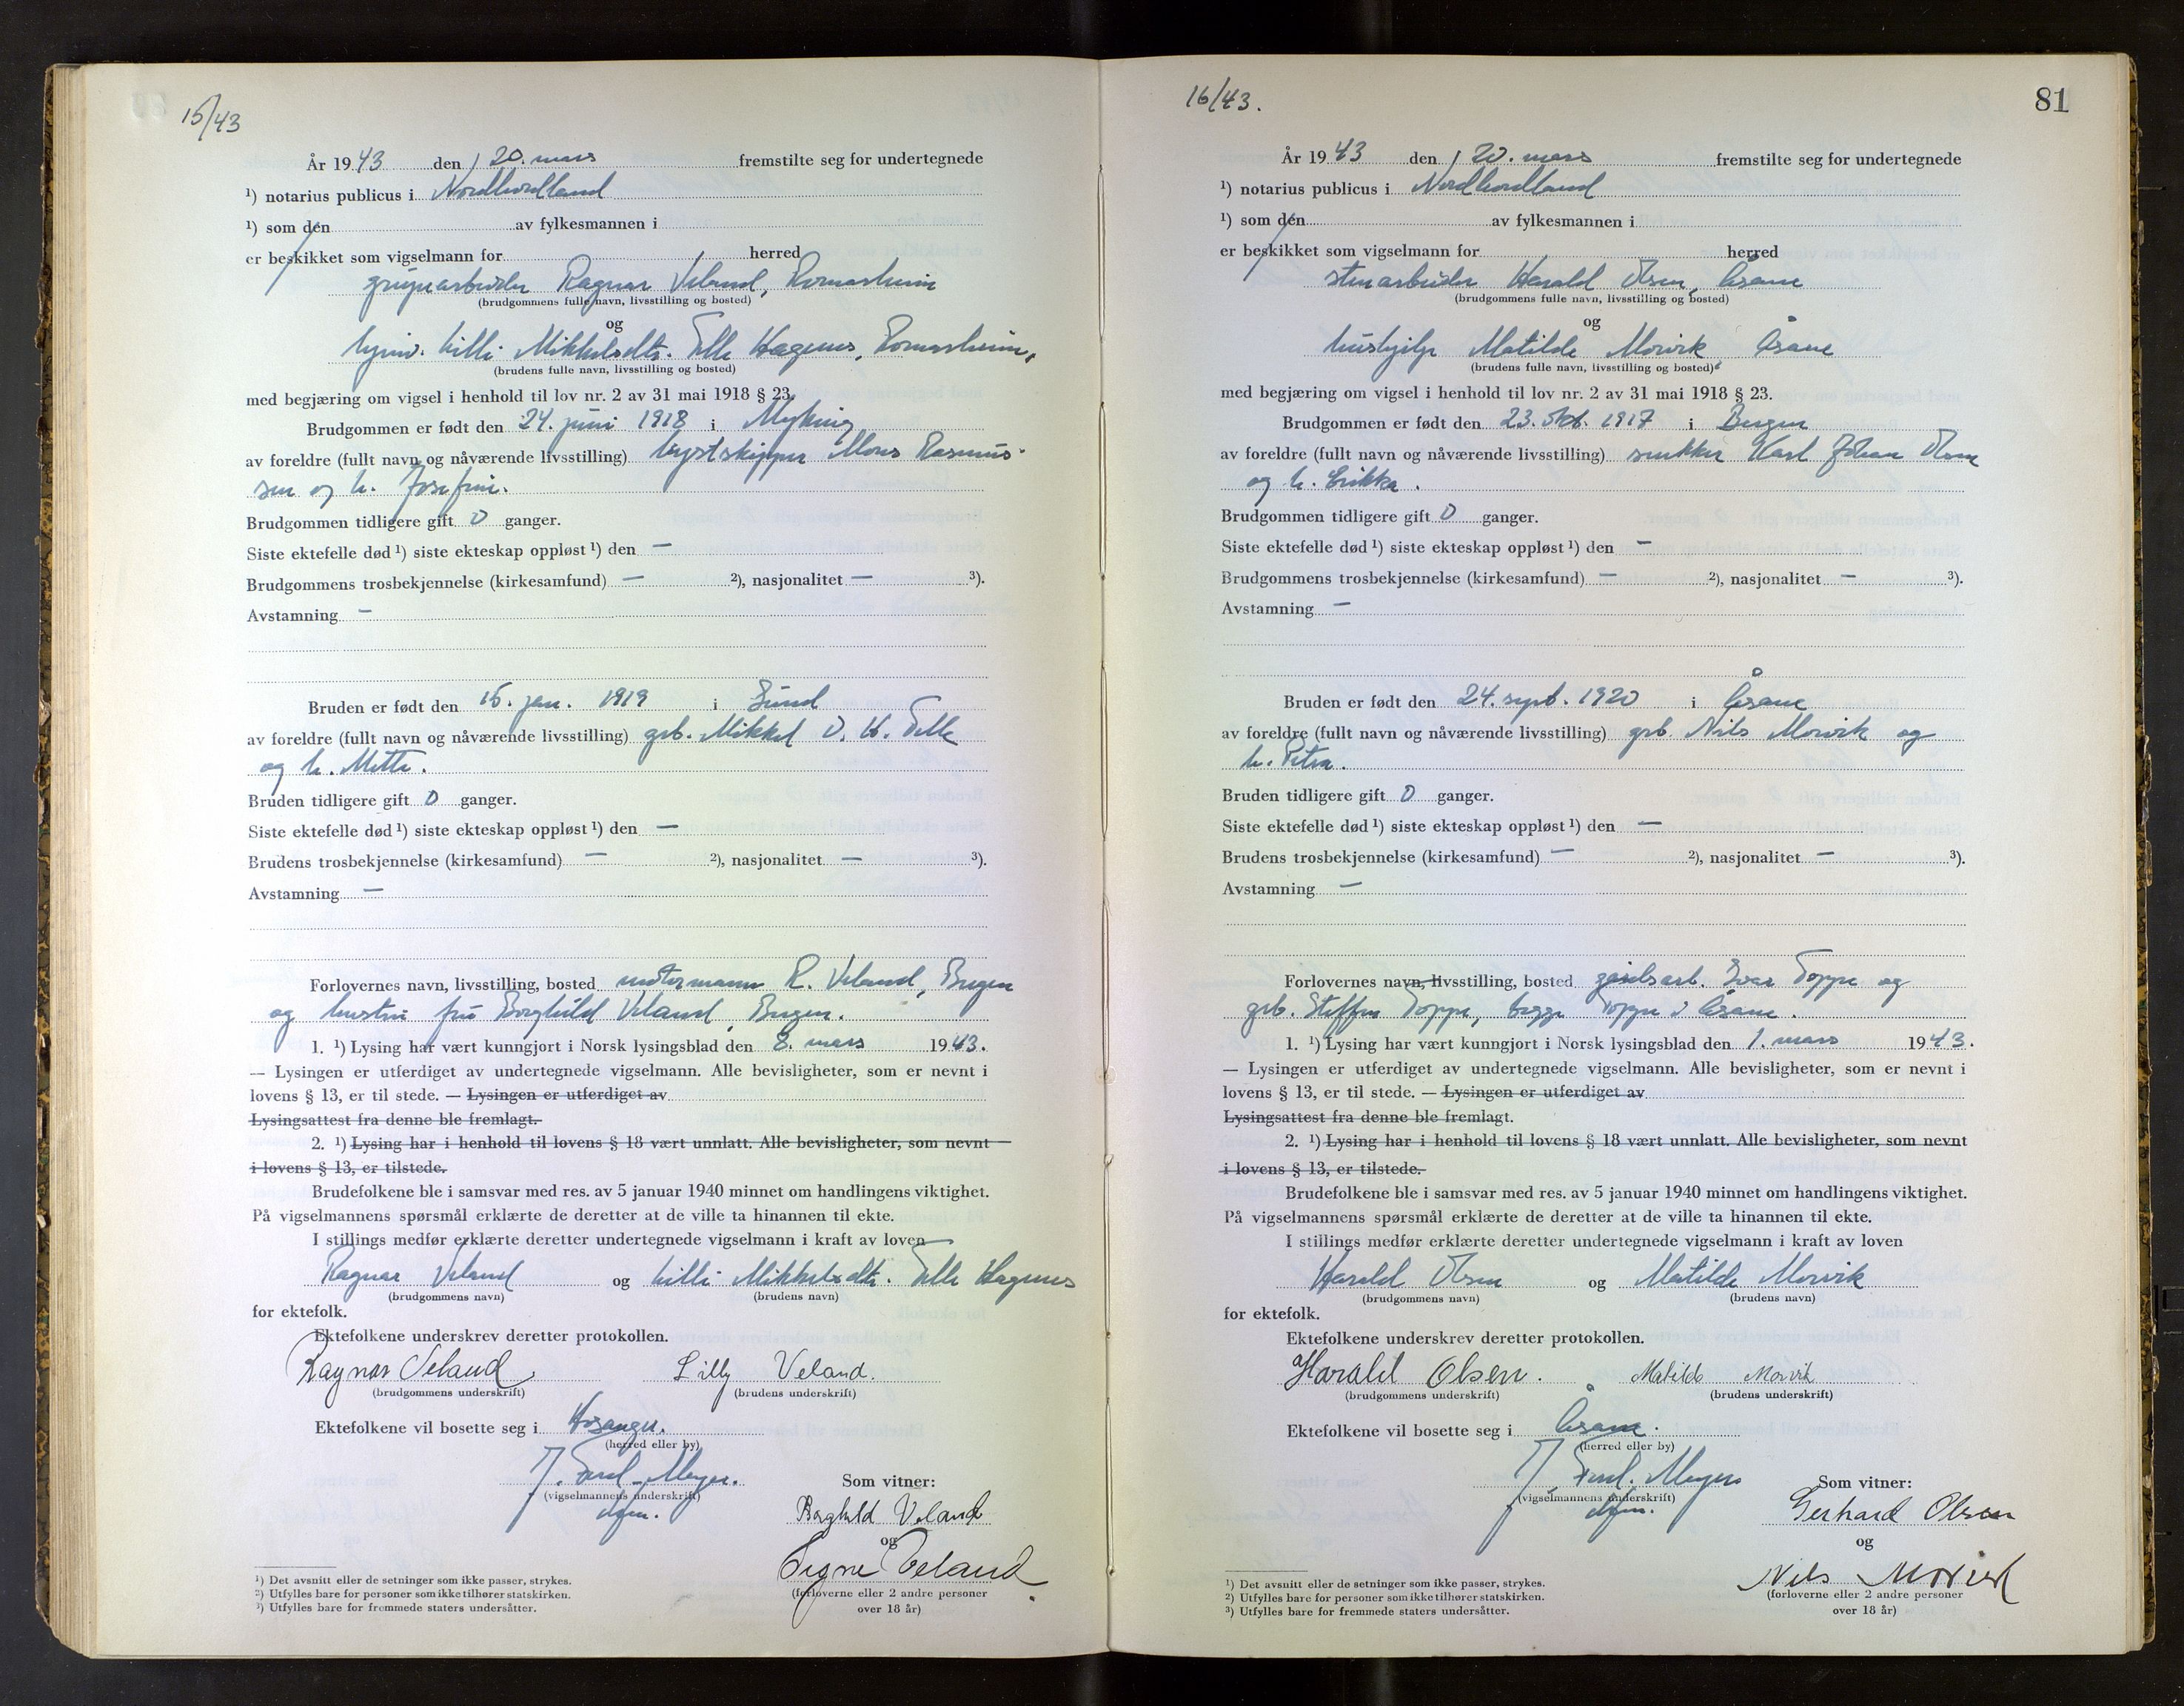 15/43
År 1943 den 20. mars fremstilte seg for undertegnede
¹) notarius publicus i Nordhordland
¹) som den av fylkesmannen i
er beskikket som vigselmann for herred
Ragnar Veland, Romarheim
(brudgommens fulle navn, livsstilling og bosted)
og
hjemv. Lilli Mikkelsdtr. Telle Hagenes, Romarheim,
(brudens fulle navn, livsstilling og bosted)
med begjæring om vigsel i henhold til lov nr. 2 av 31 mai 1918 § 23.
Brudgommen er født den 24. juni 1918 i Myking
av foreldre (fullt navn og nåværende livsstilling) Mons Rasmus-
sen og h. Josefine.
Brudgommen tidligere gift 0 ganger.
Siste ektefelle død ¹) siste ekteskap oppløst ¹) den —
Brudgommens trosbekjennelse (kirkesamfund) — ²), nasjonalitet — ³).
Avstamning —
Bruden er født den 15. jan. 1919 i Sund
av foreldre (fullt navn og nåværende livsstilling) grb. Mikkel O. H. Telle
og h. Mette.
Bruden tidligere gift 0 ganger.
Siste ektefelle død ¹) siste ekteskap oppløst ¹) den —
Brudens trosbekjennelse (kirkesamfund) — ²), nasjonalitet — ³).
Avstamning —
Forlovernes navn, livsstilling, bosted motormann R. Veland, Bergen
og hustru fru Borghild Veland, Bergen.
1. ¹) Lysing har vært kunngjort i Norsk lysingsblad den 8. mars 1943.
— Lysingen er utferdiget av undertegnede vigselmann. Alle bevisligheter, som er nevnt i
lovens § 13, er til stede. — Lysingen er utferdiget av
Lysingsattest fra denne ble fremlagt.
2. ¹) Lysing har i henhold til lovens § 18 vært unnlatt. Alle bevisligheter, som nevnt
i lovens § 13, er tilstede.
Brudefolkene ble i samsvar med res. av 5 januar 1940 minnet om handlingens viktighet.
På vigselmannens spørsmål erklærte de deretter at de ville ta hinannen til ekte.
I stillings medfør erklærte deretter undertegnede vigselmann i kraft av loven
Ragnar Veland og Lilli Mikkelsdtr. Telle Hagenes
(brudgommens navn) (brudens navn)
for ektefolk.
Ektefolkene underskrev deretter protokollen.
Ragnar Veland. Lilly Veland.
(brudgommens underskrift) (brudens underskrift)
Ektefolkene vil bosette seg i Hosanger.
(herred eller by)
Meyer.
(vigselmannens underskrift)
Som vitner:
Borghild Veland
og
Signe Veland.
(forloverne eller 2 andre personer
over 18 år)
¹) Det avsnitt eller de setninger som ikke passer, strykes.
²) Utfylles bare for personer som ikke tilhører statskirken.
³) Utfylles bare for fremmede staters undersåtter.
16/43.
81
År 1943 den 20. mars fremstilte seg for undertegnede
¹) notarius publicus i Nordhordland
¹) som den av fylkesmannen i
er beskikket som vigselmann for herred
stenarbeider Harald Olsen, Åsane
(brudgommens fulle navn, livsstilling og bosted)
og
hushjelp Matilde Morvik, Åsane
(brudens fulle navn, livsstilling og bosted)
med begjæring om vigsel i henhold til lov nr. 2 av 31 mai 1918 § 23.
Brudgommen er født den 23. okt. 1917 i Bergen
av foreldre (fullt navn og nåværende livsstilling) snekker Karl Johan Olsen
og h. Erikka.
Brudgommen tidligere gift 0 ganger.
Siste ektefelle død ¹) siste ekteskap oppløst ¹) den —
Brudgommens trosbekjennelse (kirkesamfund) — ²), nasjonalitet — ³).
Avstamning —
Bruden er født den 24. sept. 1920 i Åsane
av foreldre (fullt navn og nåværende livsstilling) grb. Nils Morvik og
h. Petra.
Bruden tidligere gift 0 ganger.
Siste ektefelle død ¹) siste ekteskap oppløst ¹) den —
Brudens trosbekjennelse (kirkesamfund) — ²), nasjonalitet — ³).
Avstamning —
Forlovernes navn, livsstilling, bosted gårdsarb. Ivar Toppe og
grb. Steffen Toppe, begge Toppe i Åsane.
1. ¹) Lysing har vært kunngjort i Norsk lysingsblad den 1. mars 1943.
— Lysingen er utferdiget av undertegnede vigselmann. Alle bevisligheter, som er nevnt i
lovens § 13, er til stede. — Lysingen er utferdiget av
Lysingsattest fra denne ble fremlagt.
2. ¹) Lysing har i henhold til lovens § 18 vært unnlatt. Alle bevisligheter, som nevnt
i lovens § 13, er tilstede.
Brudefolkene ble i samsvar med res. av 5 januar 1940 minnet om handlingens viktighet.
På vigselmannens spørsmål erklærte de deretter at de ville ta hinannen til ekte.
I stillings medfør erklærte deretter undertegnede vigselmann i kraft av loven
Harald Olsen og Matilde Morvik
(brudgommens navn) (brudens navn)
for ektefolk.
Ektefolkene underskrev deretter protokollen.
Harald Olsen. Matilde Morvik
(brudgommens underskrift) (brudens underskrift)
Ektefolkene vil bosette seg i Åsane.
(herred eller by)
Meyer
(vigselmannens underskrift)
Som vitner:
Gerhard Olsen
og
Nils Morvik
(forloverne eller 2 andre personer
over 18 år)
¹) Det avsnitt eller de setninger som ikke passer, strykes.
²) Utfylles bare for personer som ikke tilhører statskirken.
³) Utfylles bare for fremmede staters undersåtter.